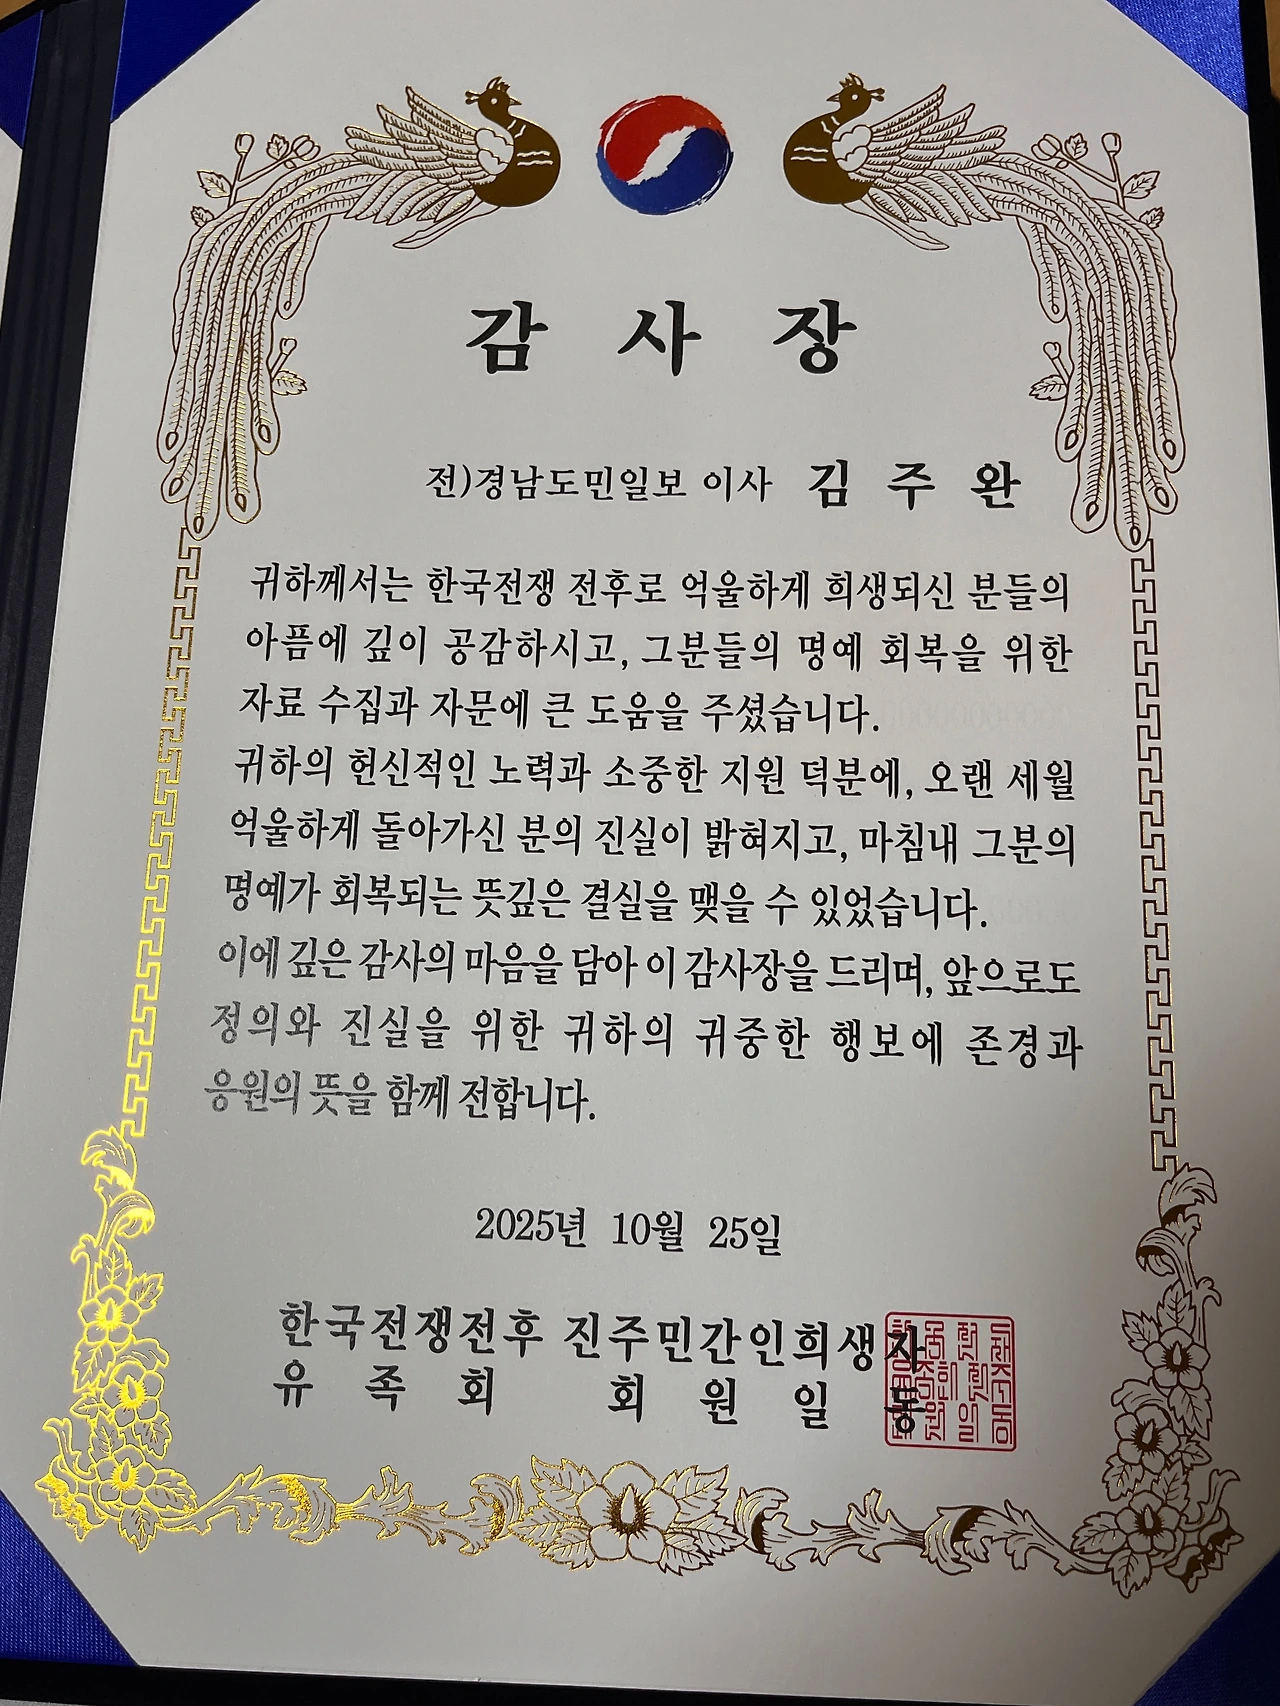 감 사 장
전)경남도민일보 이사 김 주 완
귀하께서는 한국전쟁 전후로 억울하게 희생되신 분들의
아픔에 깊이 공감하시고, 그분들의 명예 회복을 위한
자료 수집과 자문에 큰 도움을 주셨습니다.
귀하의 헌신적인 노력과 소중한 지원 덕분에, 오랜 세월
억울하게 돌아가신 분의 진실이 밝혀지고, 마침내 그분의
명예가 회복되는 뜻깊은 결실을 맺을 수 있었습니다.
이에 깊은 감사의 마음을 담아 이 감사장을 드리며, 앞으로도
정의와 진실을 위한 귀하의 귀중한 행보에 존경과
응원의 뜻을 함께 전합니다.
2025년 10월 25일
한국전쟁전후 진주민간인희생자
유 족 회 회 원 일 동